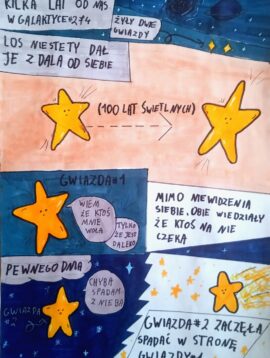 KILKA LAT OD NAS
W GALAKTYCE#274
ŻYŁY DWIE
GWIAZDY
LOS NIESTETY DAŁ
JE Z DALA OD SIEBIE
(100 LAT ŚWIETLNYCH)
GWIAZDA#1
WIEM
ŻE KTOŚ
MNIE
WOŁA
TYLKO
ŻE JEST
DALEKO
MIMO NIEWIDZENIA
SIEBIE, OBIE WIEDZIAŁY
ŻE KTOŚ NA NIE
CZEKA
PEWNEGO DNIA
CHYBA
SPADAM
Z NIEBA
GWIAZDA
GWIAZDA#2 ZACZĘŁA
SPADAĆ W STRONĘ
GWIAZDY#1